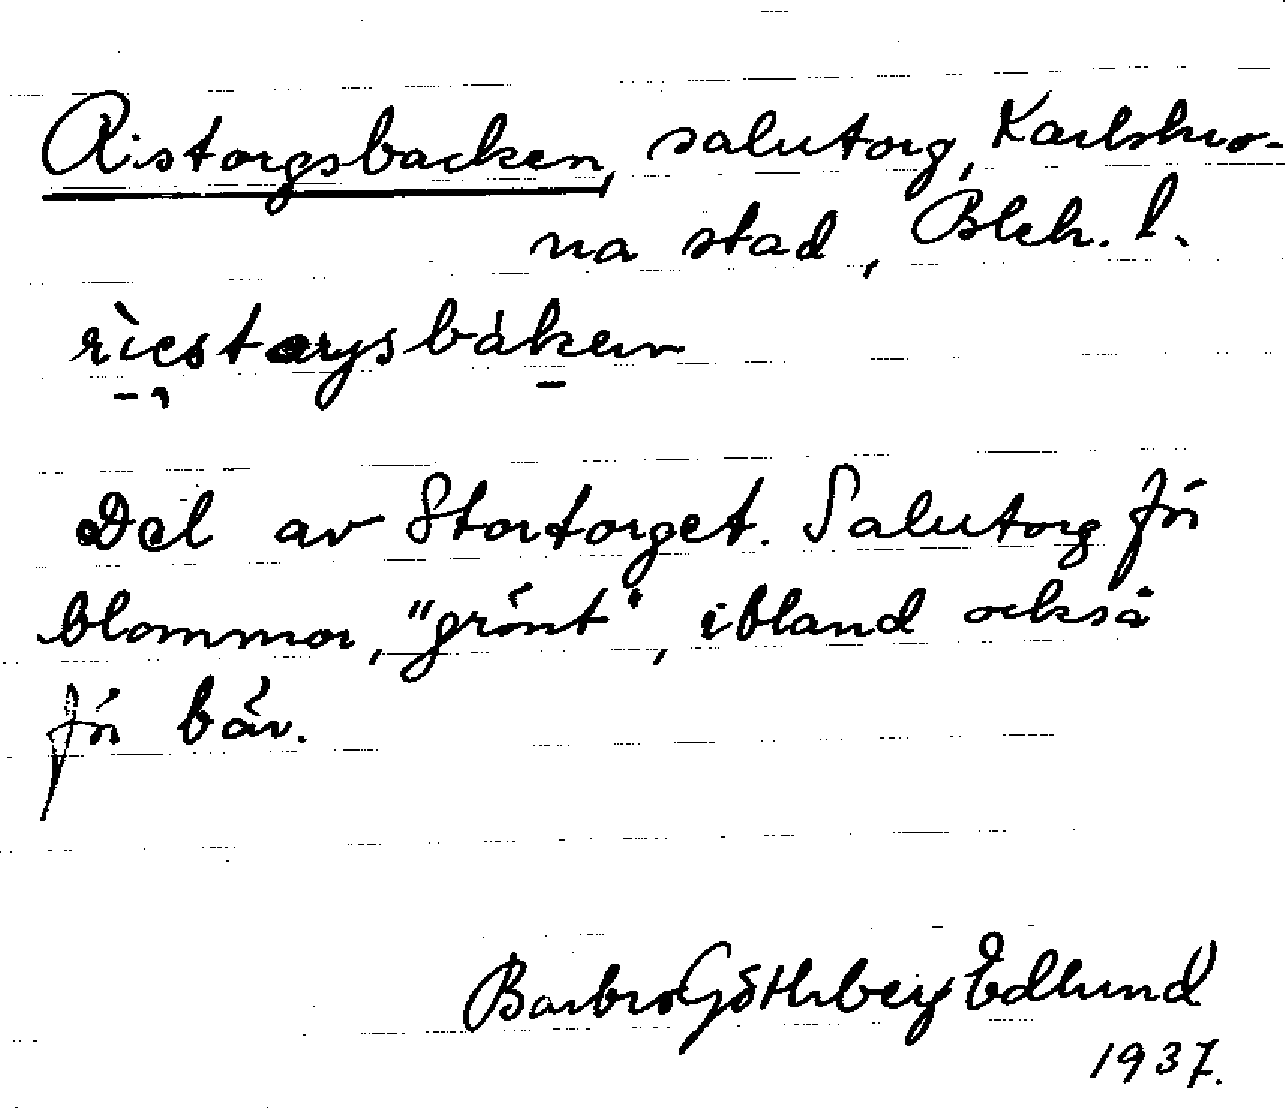 Ristorgsbacken, salutorg, Karlskro-
na stad, Blek. l.
Del av Stortorget. Salutorg för
blommor, "grönt", ibland också
för bär.
Barbro Göthberg Edlund
1937.